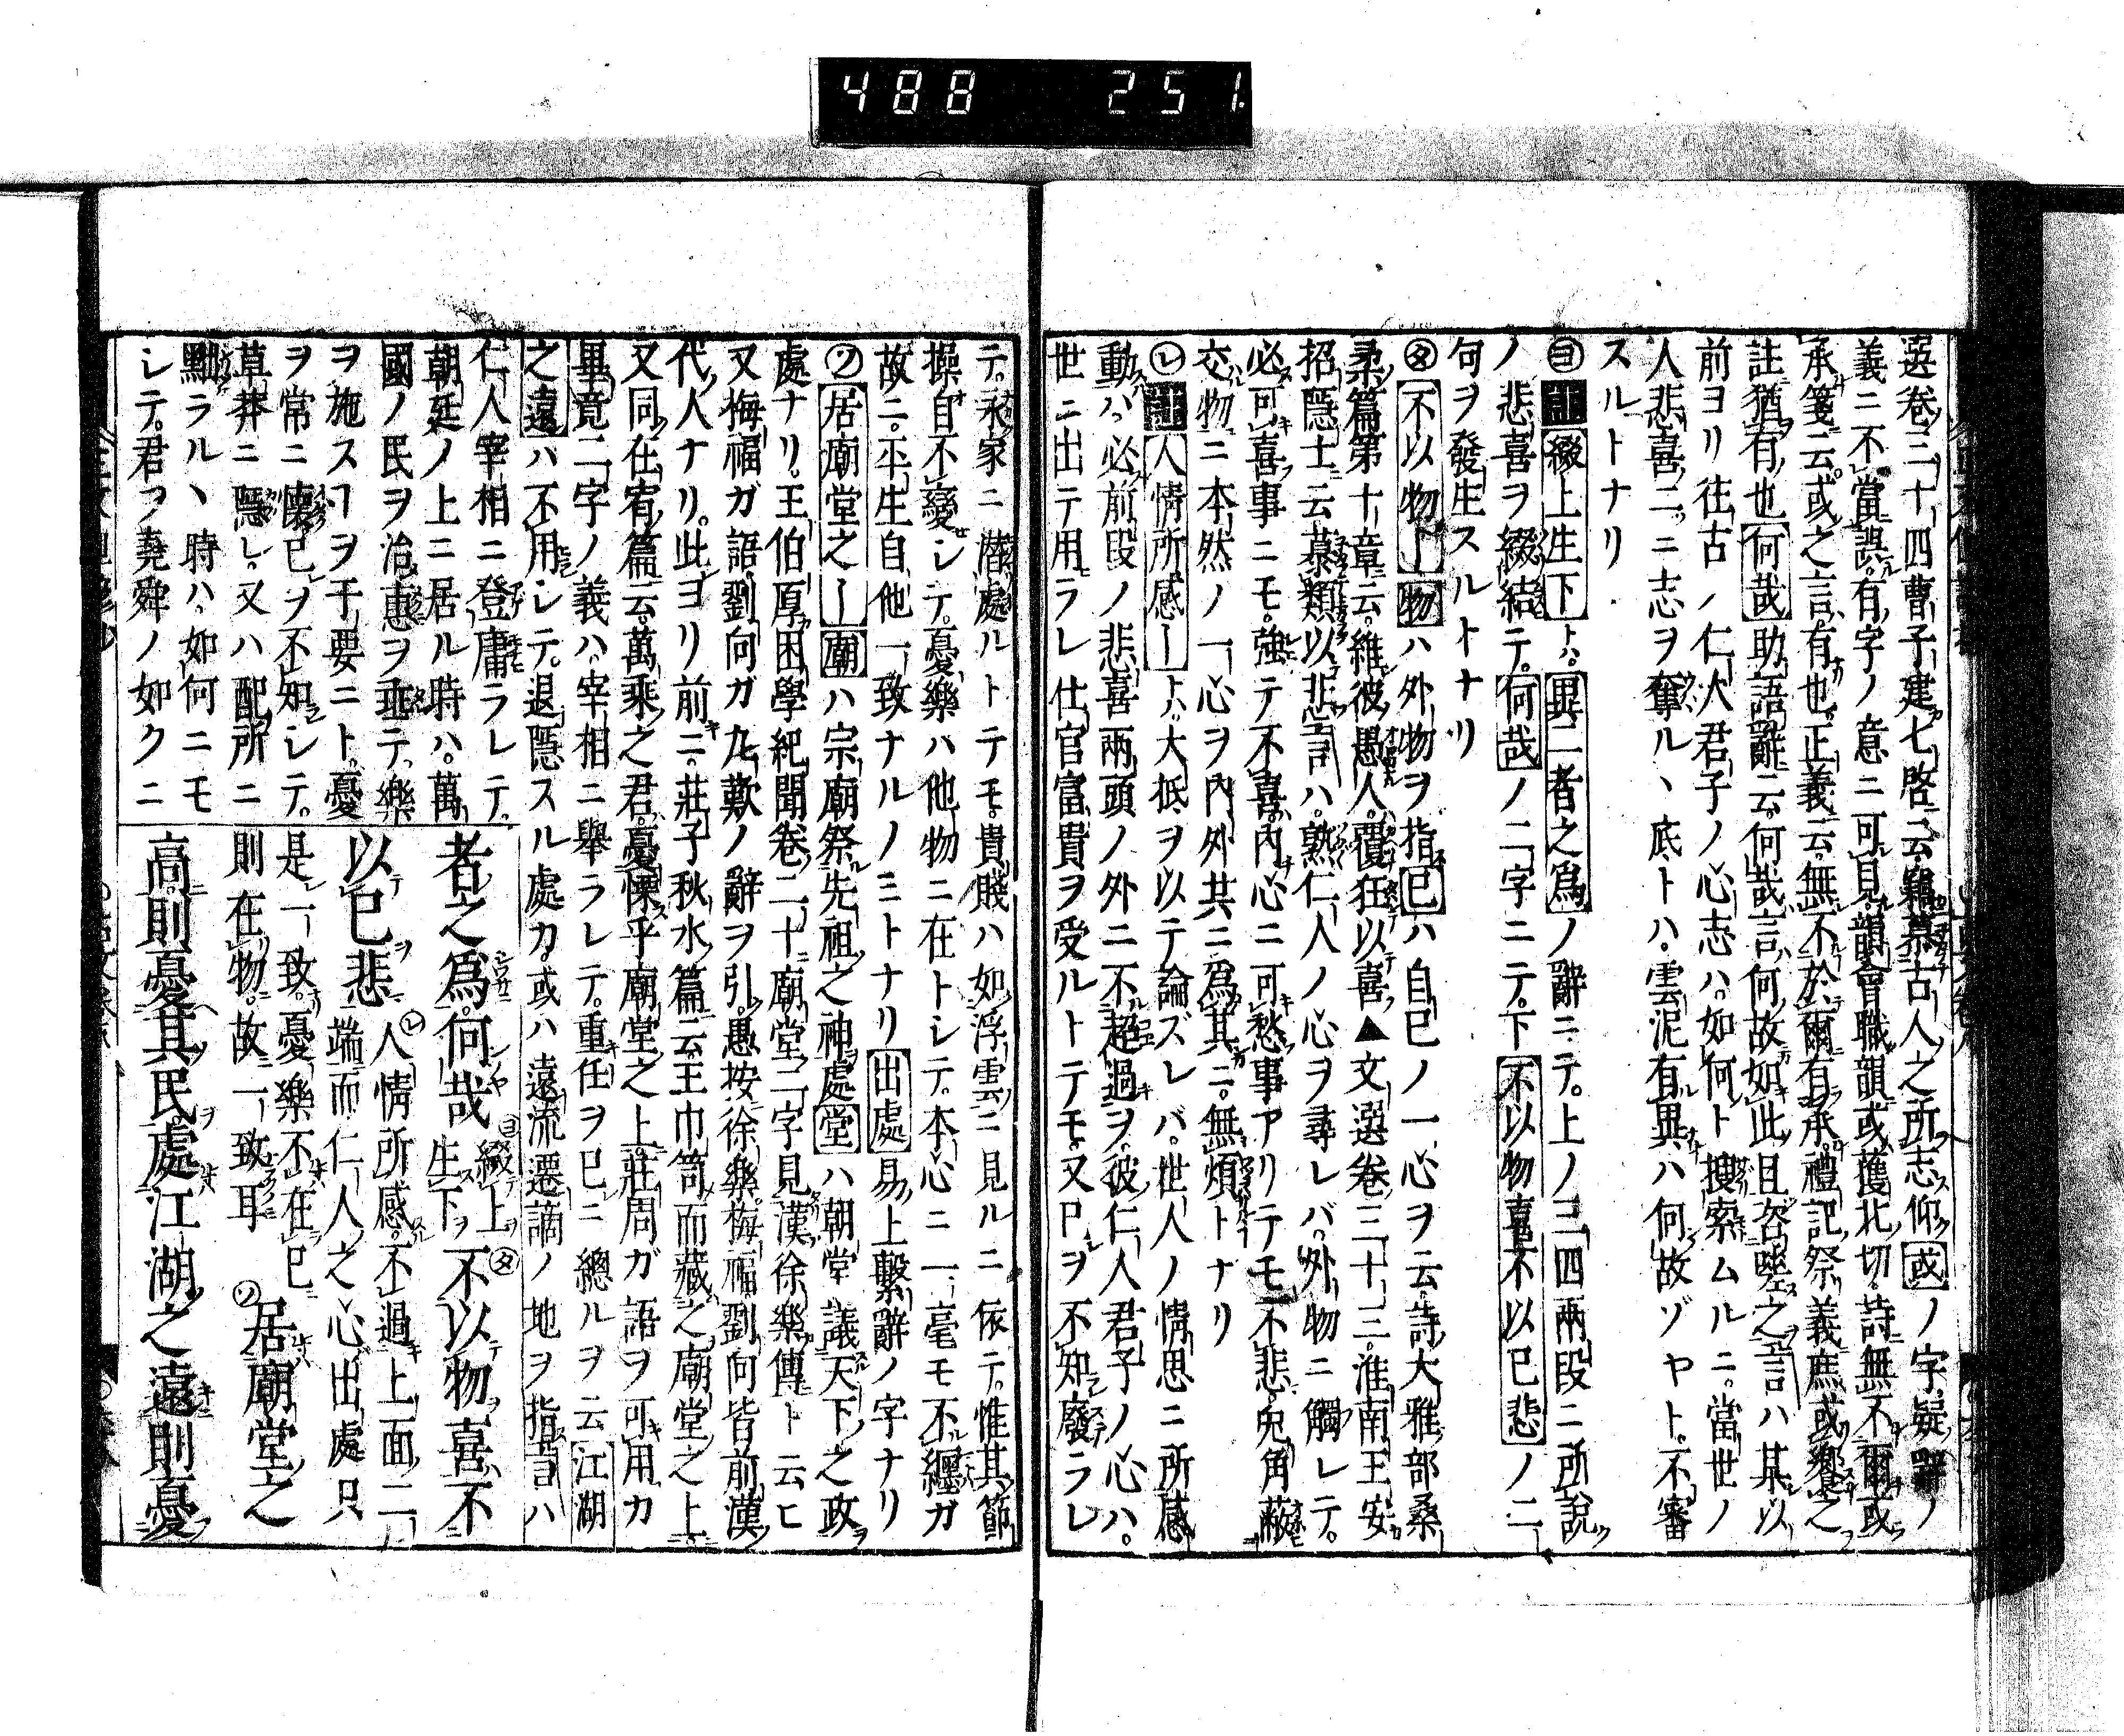 488 251
選卷三十四曹子建七啓云竊慕古人之所志仰或ノ字疑辭ノ
義ニ不當誤有字ノ意ニ可見韻會職韻或獲北切詩無不爾或
承箋云或之言有也正義云無不於爾有承禮記祭義庶或饗之
註猶有也何哉助語辭云何哉言何故如此且咨嗟之言ハ某以
前ヨリ往古ノ仁人君子ノ心志ハ如何ト捜索ムルニ當世ノ
人悲喜二ニ志ヲ奪ルヽ底トハ雲泥有異ハ何故ゾヤト不審
スルトナリ
ヨ註綴上生下トハ異二者之爲ノ辭ニテ上ノ三四兩段ニ所說
ノ悲喜ヲ綴結テ何哉ノ二字ニテ下不以物喜不以已悲ノ二
句ヲ發生スルトナリ
タ不以物ー物ハ外物ヲ指已ハ自已ノ一心ヲ云詩大雅部桑
柔篇第十章云維彼愚人覆狂以喜▲文選卷三十三淮南王安
招隱士云慕類以悲言ハ熟仁人ノ心ヲ尋レバ外物ニ觸レテ
必可喜事ニモ強テ不喜內心ニ可愁事アリテモ不悲兔角蔽
交物ニ本然ノ一心ヲ內外共ニ爲其ニ無煩トナリ
レ註人情所感ートハ大抵ヲ以テ論ズレバ世人ノ情思ニ所感
動ハ必前段ノ悲喜兩頭ノ外ニ不超過ヲ彼仁人君子ノ心ハ
世ニ出テ用ラレ仕官富貴ヲ受ルトテモ又ハヲ不知廢ラレ
テ永家ニ潜處ルトテモ貴賤ハ如浮雲ニ見ルニ依テ惟其節
操自不變レテ憂樂ハ他物ニ在トレテ本心ニ一毫モ不纏ガ
故ニ平生自他一致ナルノミトナリ出處易上繫辭ノ字ナリ
ソ居廟堂之ー廟ハ宗廟祭先祖之神處堂ハ朝堂議天下之政
處ナリ王伯厚困學紀聞卷二十廟堂二字見漢徐樂傳ト云ヒ
又梅福ガ語劉向ガ九歎ノ辭ヲ引愚按徐樂梅福劉向皆前漢
代人ナリ此ヨリ前ニ莊子秋水篇云王巾笥而藏之廟堂之上
又同在宥篇云萬乘之君憂慄乎廟堂之上莊周ガ語ヲ可用カ
畢竟二字ノ義ハ宰相ニ擧ラレテ重任ヲ已ニ總ルヲ云江湖
之遠ハ不用レテ退隱スル處カ或ハ遠流遷謫ノ地ヲ指言ハ
仁人宰相ニ登庸ラレテ
朝廷ノ上ニ居ル時ハ萬
國ノ民ヲ治惠ヲ垂テ樂
ヲ施スヿヲ于要ニト憂
ヲ常ニ懷已ヲ不知レテ
草莽ニ隱レ又ハ配所ニ
黜ラルヽ時ハ如何ニモ
レテ君ヲ堯舜ノ如クニ
者之爲何哉ヨ綴上生下タ不以物喜不
以已悲レ人情所感不過上面二端而仁人之心出處只
是一致憂樂不在已則在物故一致耳ソ居廟堂之
高則憂其民處江湖之遠則憂